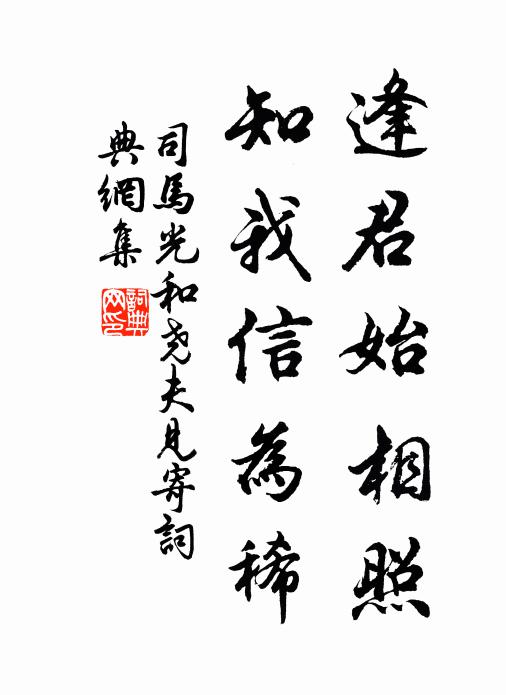 逢君始相照
知我信為稀
司馬光和堯夫見寄詞
典網集
詞典
网印